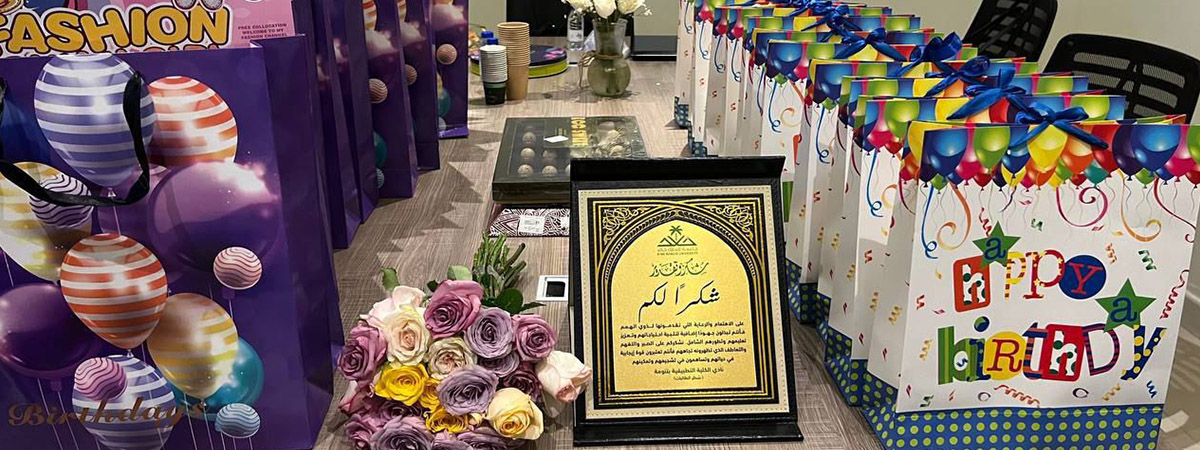 FASHION
FREE COLLOCATION
WELCOME TO MY
FASHION
Birthday
جامعة الملك خالد
KING KHALID UNIVERSITY
شكر وتقدير
شكرًا لكم
على الاهتمام والرعاية التي تقدمونها لذوي الهمم
فأنتم تبذلون جهودًا إضافية لتلبية احتياجاتهم وتعزيز
تعليمهم وتطورهم الشامل. نشكركم على الصبر والتفهم
والتعاطف الذي تظهرونه تجاههم فأنتم تعتبرون قوة إيجابية
في حياتهم وتساهمون في تشجيعهم وتمكينهم
نادي الكلية التطبيقية بتنومة
(شطر الطالبات)
happy
a
BiRTHDAY